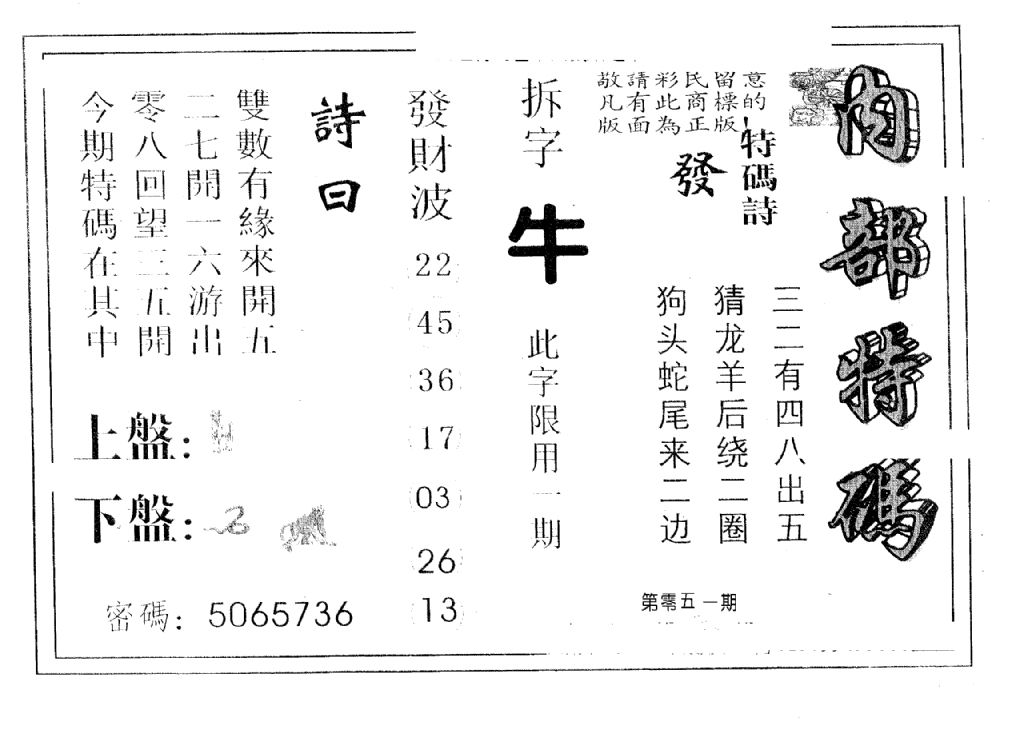 內部特碼
敬請彩民留意
凡有此商標的
版面為正版
特碼詩
發
三二有四八出五
猜龙羊后绕二圈
狗头蛇尾来二边
第零五一期
拆字
牛
此字限用一期
發財波
22
45
36
17
03
26
13
詩曰
雙數有緣來開五
二七開一六游出
零八回望三五開
今期特碼在其中
上盤:
下盤:
密碼: 5065736